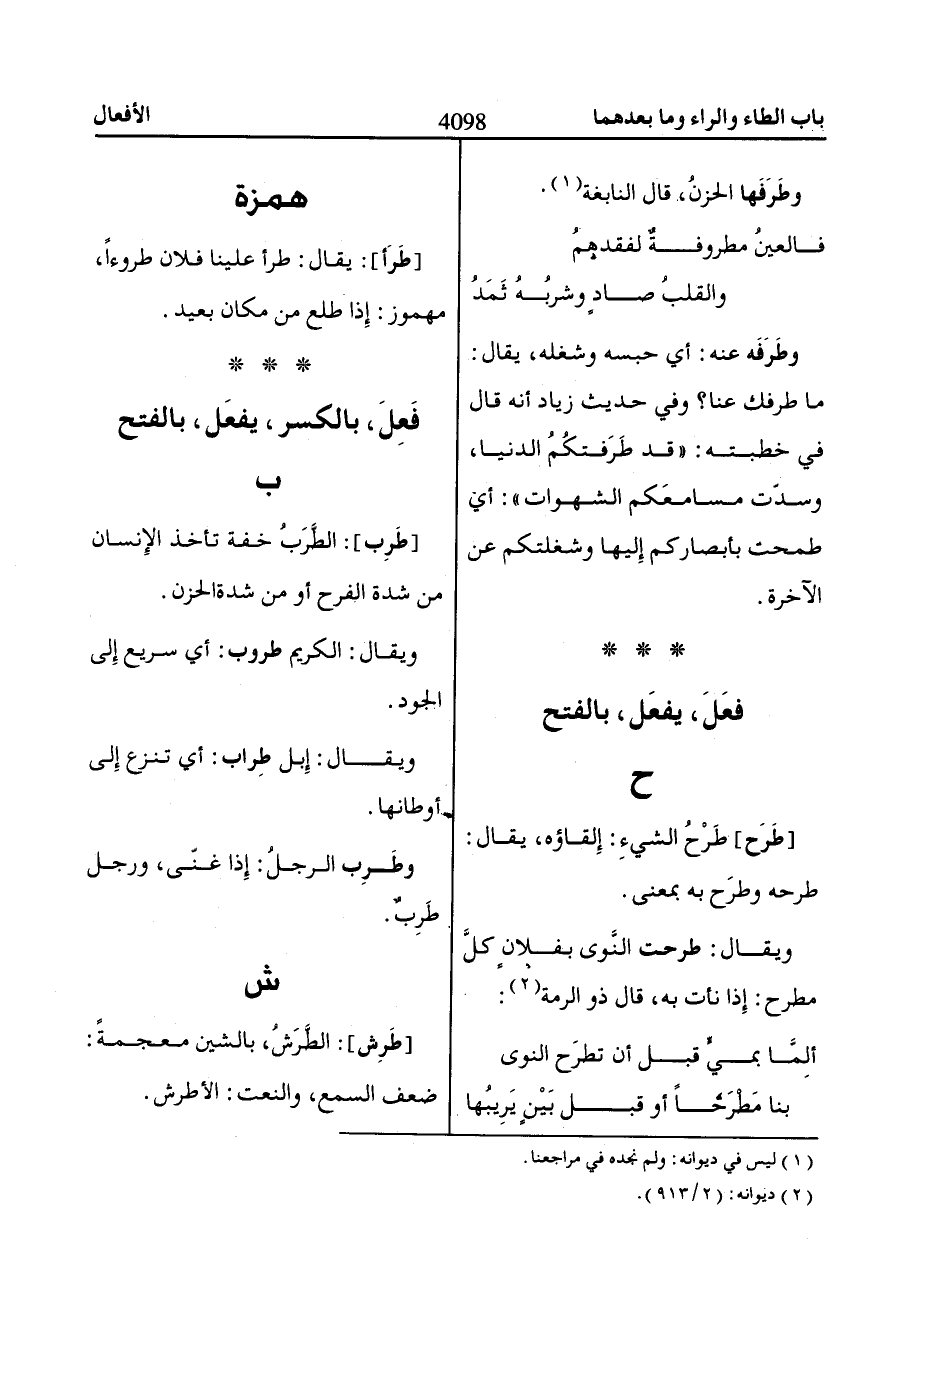 باب الطاء والراء وما بعدهما
4098
الأفعال
وطَرَفَها الحزنُ، قال النابغة(١).
فالعينُ مطروفةٌ لفقدهِمُ
والقلبُ صادٍ وشربُهُ ثَمَدُ
وطَرَفَه عنه: أي حبسه وشغله، يقال:
ما طرفك عنا؟ وفي حديث زياد أنه قال
في خطبته: «قد طَرَفتكُمُ الدنيا،
وسدّت مسامعَكم الشهوات»: أي
طمحت بأبصاركم إليها وشغلتكم عن
الآخرة.
* * *
فعَلَ، يفعَل، بالفتح
ح
[طَرَح] طَرْحُ الشيءِ: إلقاؤه، يقال:
طرحه وطرَح به بمعنى.
ويقال: طرحت النَّوى بفلانٍ كلَّ
مطرح: إذا نأت به، قال ذو الرمة(٢):
ألِمَّا بميٍّ قبل أن تطرَح النوى
بنا مَطْرَحاً أو قبل بَيْنٍ يَرِيبُها
همزة
[طَرَأ]: يقال: طرأ علينا فلان طروءاً،
مهموز: إذا طلع من مكان بعيد.
* * *
فَعِلَ، بالكسر، يفعَل، بالفتح
ب
[طَرِب]: الطَّرَبُ خفة تأخذ الإنسان
من شدة الفرح أو من شدةالحزن.
ويقال: الكريم طروب: أي سريع إلى
الجود.
ويقال: إبل طِراب: أي تنزع إلى
أوطانها.
وطَرِب الرجلُ: إذا غنّى، ورجل
طَرِبٌ.
ش
[طَرِش]: الطَّرَشُ، بالشين معجمةً:
ضعف السمع، والنعت: الأطرش.
(١) ليس في ديوانه: ولم نجده في مراجعنا.
(٢) ديوانه: (٢/ ٩١٣).